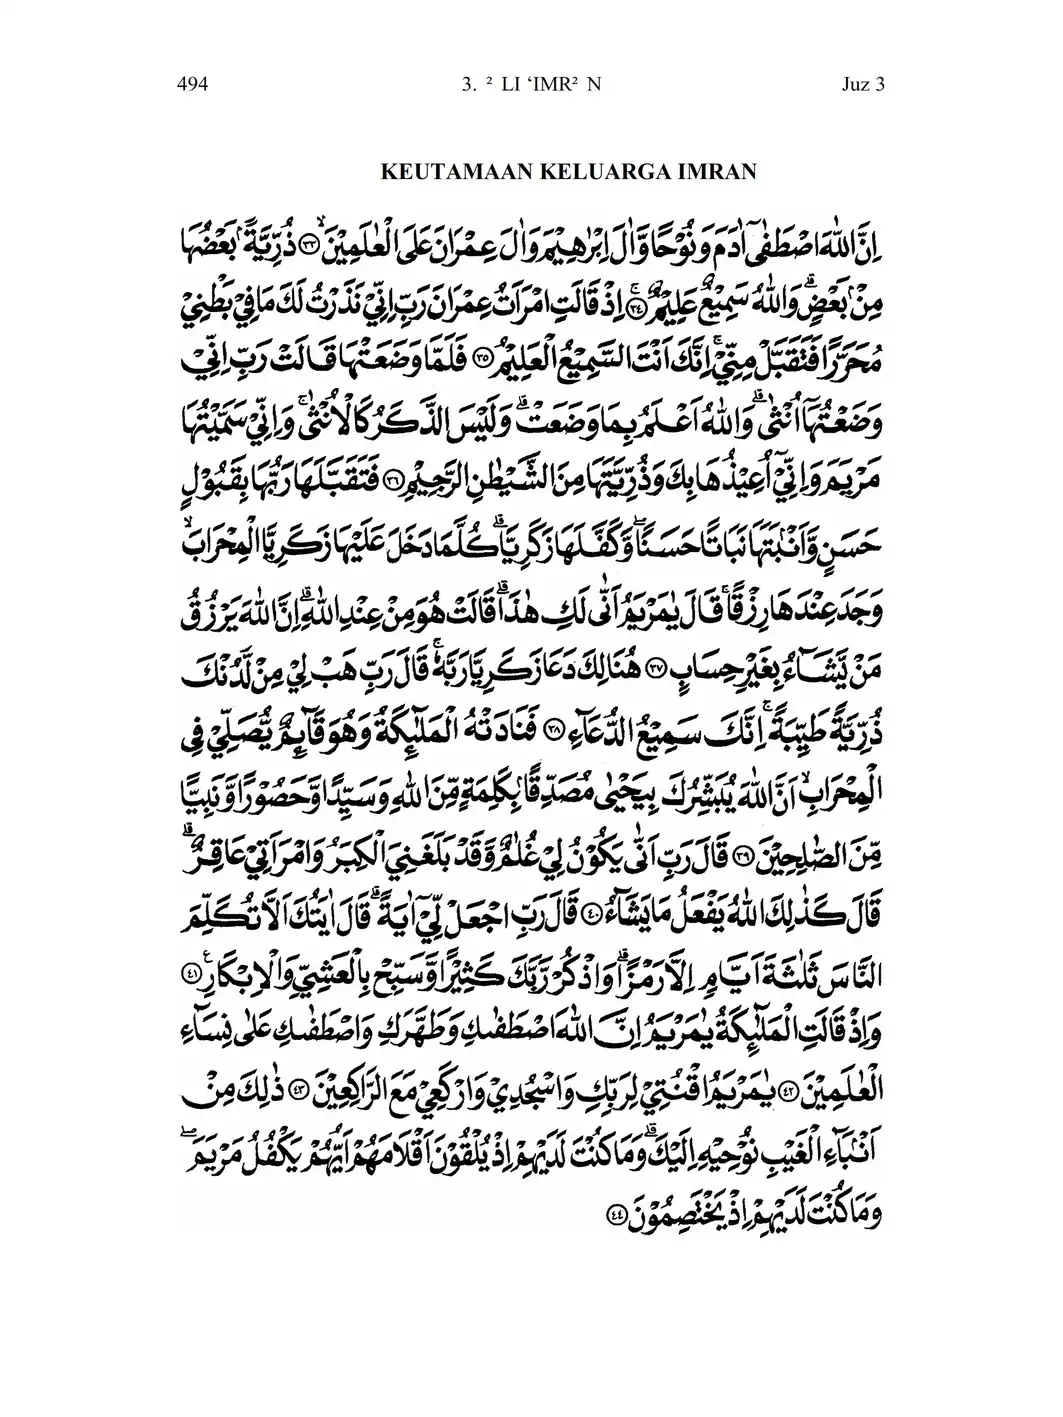 494 3. ² LI ‘IMR² N Juz 3
KEUTAMAAN KELUARGA IMRAN
اِنَّ اللّٰهَ اصْطَفٰىٓ اٰدَمَ وَنُوْحًا وَّاٰلَ اِبْرٰهِيْمَ وَاٰلَ عِمْرَانَ عَلَى الْعٰلَمِيْنَۙ ٣٣ ذُرِّيَّةً ۢ بَعْضُهَا
مِنْۢ بَعْضٍۗ وَاللّٰهُ سَمِيْعٌ عَلِيْمٌۚ ٣٤ اِذْ قَالَتِ امْرَاَتُ عِمْرَانَ رَبِّ اِنِّيْ نَذَرْتُ لَكَ مَا فِيْ بَطْنِيْ
مُحَرَّرًا فَتَقَبَّلْ مِنِّيْۚ اِنَّكَ اَنْتَ السَّمِيْعُ الْعَلِيْمُ ٣٥ فَلَمَّا وَضَعَتْهَا قَالَتْ رَبِّ اِنِّيْ
وَضَعْتُهَآ اُنْثٰىۗ وَاللّٰهُ اَعْلَمُ بِمَا وَضَعَتْۗ وَلَيْسَ الذَّكَرُ كَالْاُنْثٰىۚ وَاِنِّيْ سَمَّيْتُهَا
مَرْيَمَ وَاِنِّيْٓ اُعِيْذُهَا بِكَ وَذُرِّيَّتَهَا مِنَ الشَّيْطٰنِ الرَّجِيْمِ ٣٦ فَتَقَبَّلَهَا رَبُّهَا بِقَبُوْلٍ
حَسَنٍ وَّاَنْۢبَتَهَا نَبَاتًا حَسَنًاۖ وَّكَفَّلَهَا زَكَرِيَّاۗ كُلَّمَا دَخَلَ عَلَيْهَا زَكَرِيَّا الْمِحْرَابَۙ
وَجَدَ عِنْدَهَا رِزْقًاۚ قَالَ يٰمَرْيَمُ اَنّٰى لَكِ هٰذَاۗ قَالَتْ هُوَ مِنْ عِنْدِ اللّٰهِۗ اِنَّ اللّٰهَ يَرْزُقُ
مَنْ يَّشَاۤءُ بِغَيْرِ حِسَابٍ ٣٧ هُنَالِكَ دَعَا زَكَرِيَّا رَبَّهٗۚ قَالَ رَبِّ هَبْ لِيْ مِنْ لَّدُنْكَ
ذُرِّيَّةً طَيِّبَةًۚ اِنَّكَ سَمِيْعُ الدُّعَاۤءِ ٣٨ فَنَادَتْهُ الْمَلٰۤىِٕكَةُ وَهُوَ قَاۤىِٕمٌ يُّصَلِّيْ فِى
الْمِحْرَابِۙ اَنَّ اللّٰهَ يُبَشِّرُكَ بِيَحْيٰى مُصَدِّقًاۢ بِكَلِمَةٍ مِّنَ اللّٰهِ وَسَيِّدًا وَّحَصُوْرًا وَّنَبِيًّا
مِّنَ الصّٰلِحِيْنَ ٣٩ قَالَ رَبِّ اَنّٰى يَكُوْنُ لِيْ غُلٰمٌ وَّقَدْ بَلَغَنِيَ الْكِبَرُ وَامْرَاَتِيْ عَاقِرٌۗ
قَالَ كَذٰلِكَ اللّٰهُ يَفْعَلُ مَا يَشَاۤءُ ٤٠ قَالَ رَبِّ اجْعَلْ لِّيْٓ اٰيَةًۗ قَالَ اٰيَتُكَ اَلَّا تُكَلِّمَ
النَّاسَ ثَلٰثَةَ اَيَّامٍ اِلَّا رَمْزًاۗ وَاذْكُرْ رَّبَّكَ كَثِيْرًا وَّسَبِّحْ بِالْعَشِيِّ وَالْاِبْكَارِࣖ ٤١
وَاِذْ قَالَتِ الْمَلٰۤىِٕكَةُ يٰمَرْيَمُ اِنَّ اللّٰهَ اصْطَفٰىكِ وَطَهَّرَكِ وَاصْطَفٰىكِ عَلٰى نِسَاۤءِ
الْعٰلَمِيْنَ ٤٢ يٰمَرْيَمُ اقْنُتِيْ لِرَبِّكِ وَاسْجُدِيْ وَارْكَعِيْ مَعَ الرّٰكِعِيْنَ ٤٣ ذٰلِكَ مِنْ
اَنْۢبَاۤءِ الْغَيْبِ نُوْحِيْهِ اِلَيْكَۗ وَمَا كُنْتَ لَدَيْهِمْ اِذْ يُلْقُوْنَ اَقْلَامَهُمْ اَيُّهُمْ يَكْفُلُ مَرْيَمَۖ
وَمَا كُنْتَ لَدَيْهِمْ اِذْ يَخْتَصِمُوْنَ ٤٤